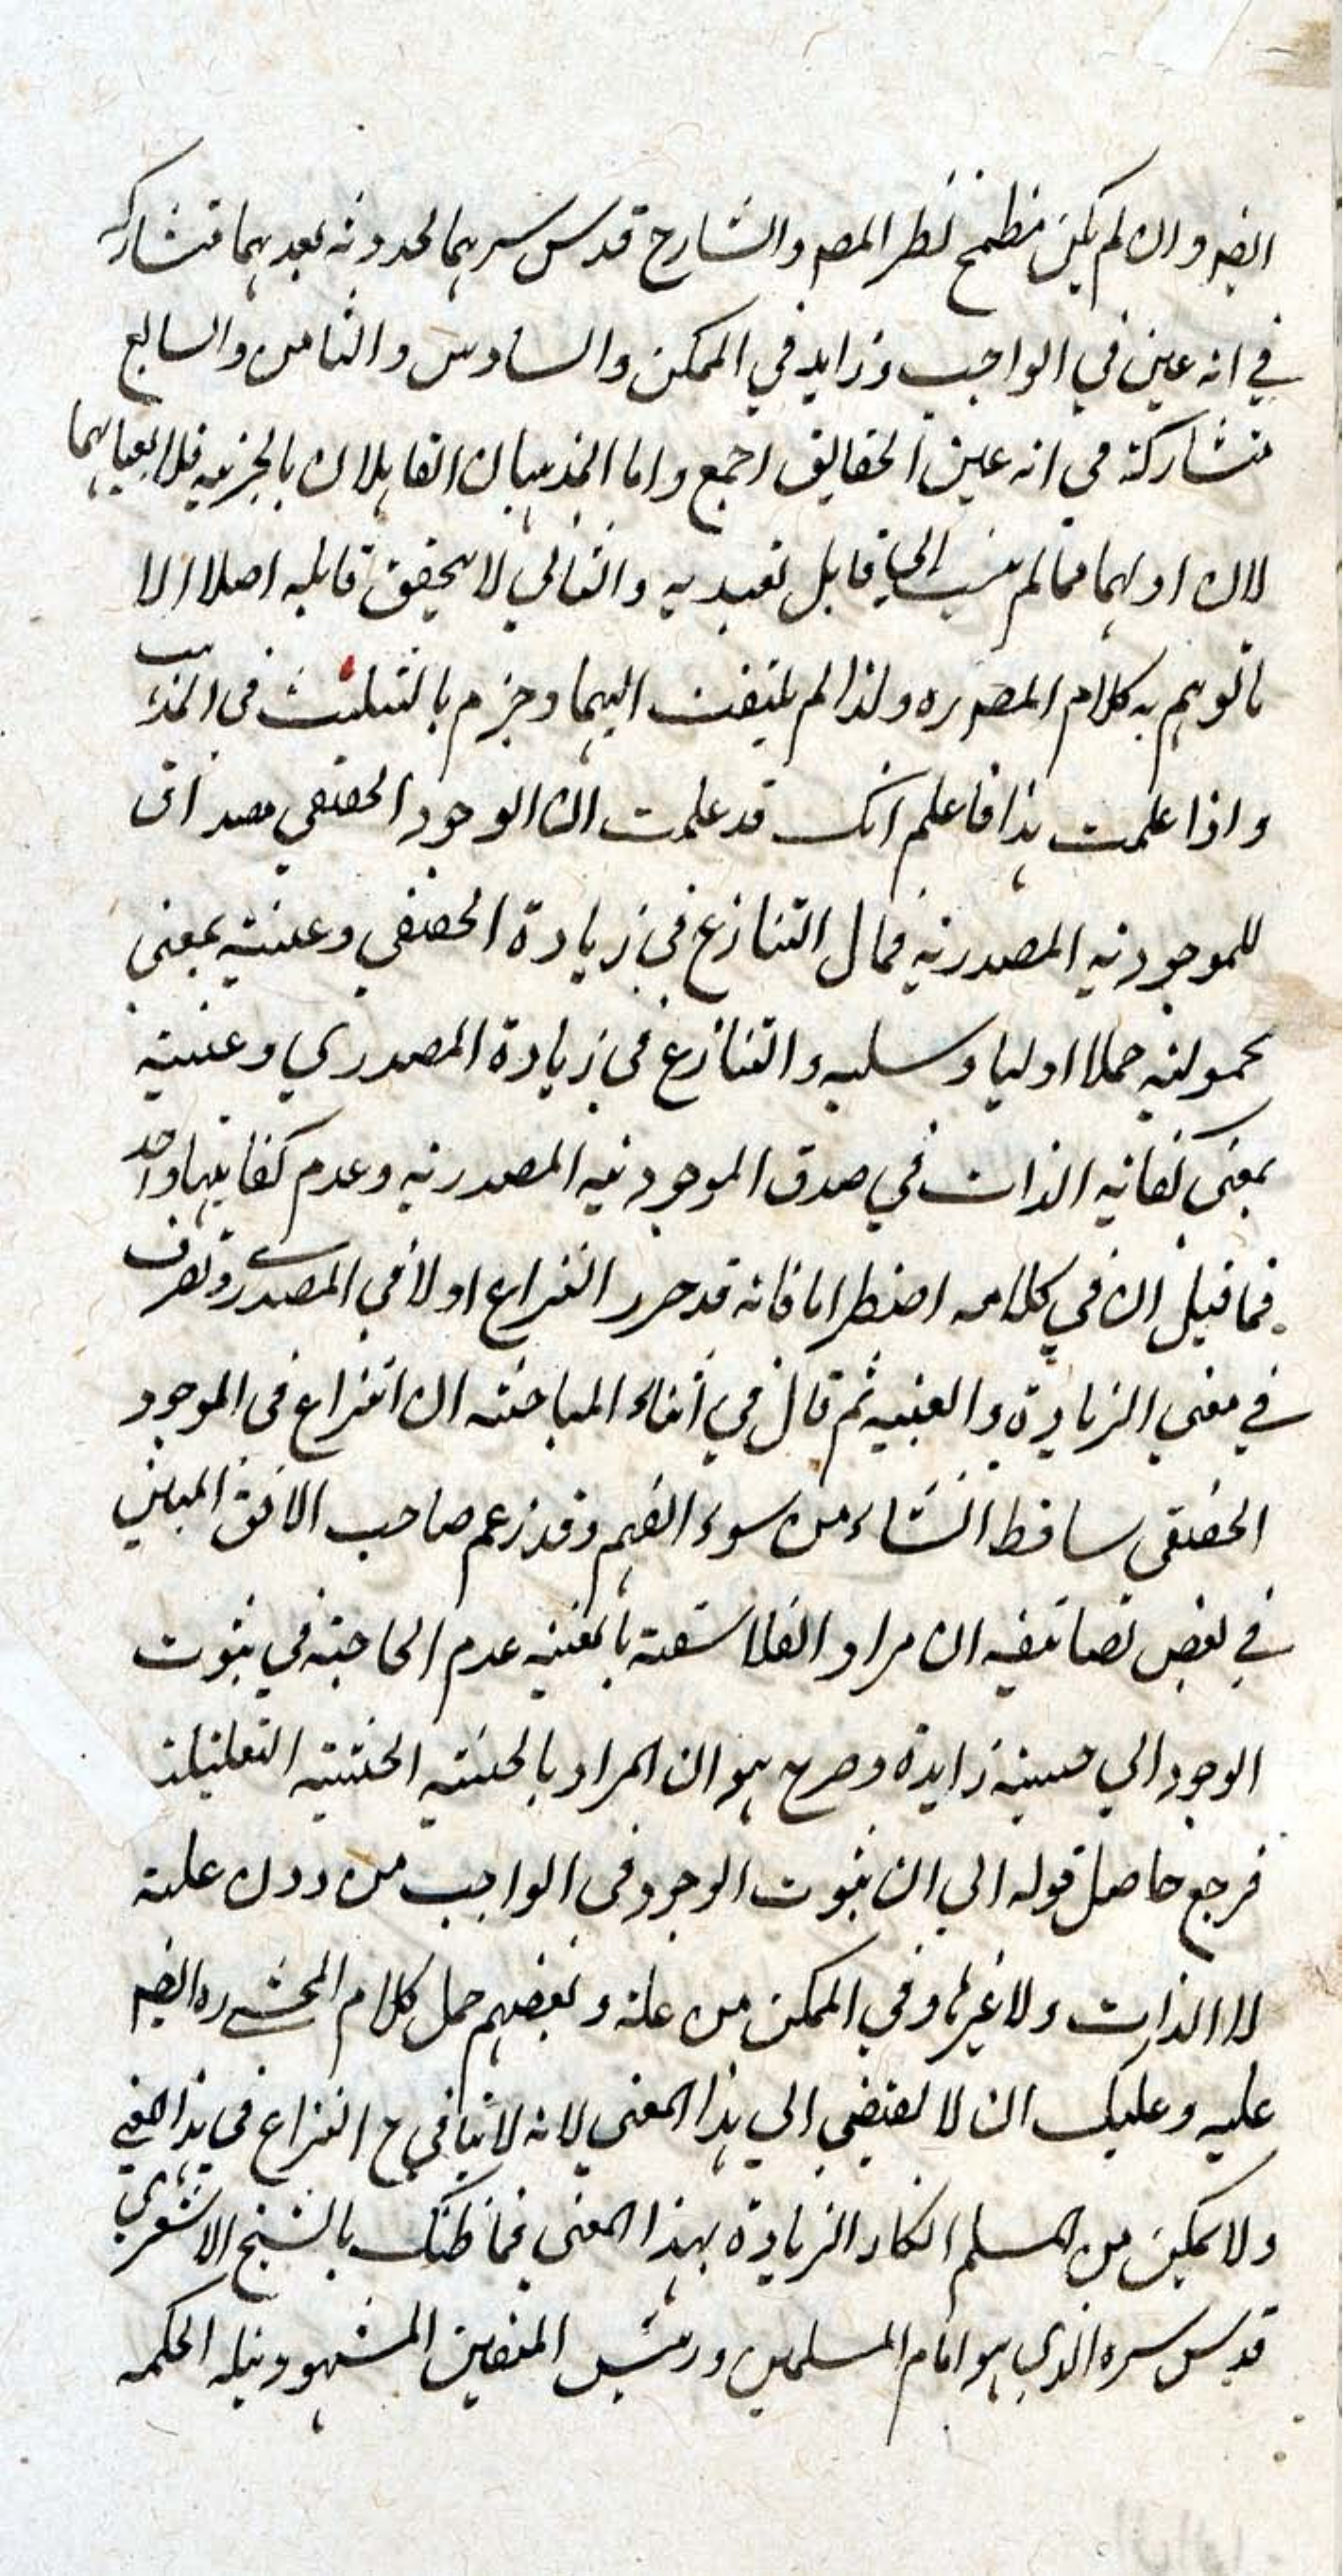 ايضه وان لم يكن مطمح نظر المصـ والشارح قدس سرهما لحدوثه بعدهما متشاركة
في انه عين في الواجب وزايد في الممكن والسادس والثامن والسابع
متشاركة في انه عين الحقايق اجمع واما المذهبان القايلان بالجزئيه فلا يعبأ بهما
لان اولهما مما لم ينسب الى قابل تعبد به والثاني لا يحقق قايله اصلا الا
ما توهم به كلام المصـ ره ولذا لم يلتفت اليهما وجزم بالتثليث في المذهب
واذا علمت هذا فاعلم انك قد علمت ان الوجود الحقيقي مصداق
للموجوديه المصدريه فمال التنازع في زيادة الحقيقي وعينيته بمعنى
محموليته حملا اوليا وسلبه والتنازع في زيادة المصدري وعينيته
بمعنى كفاية الذات في صدق الموجوديه المصدريه وعدم كفايتها واحد
فما قيل ان في كلامه اضطرابا فانه قد حرر النزاع اولا في المصدري وتصرف
في معنى الزيادة والعينيه ثم قال في اثناء المباحثه ان النزاع في الموجود
الحقيقي ساقط انشاء من سوء الفهم وقد زعم صاحب الافق المبين
في بعض تصانيفه ان مراد الفلاسفة بالعينيه عدم الحاجته في ثبوت
الوجود الي حيثية زايدة وصرح هو ان المراد بالحيثية الحيثيته التعليلية
فرجع حاصل قوله الي ان ثبوت الوجود في الواجب من دون علته
لا الذات ولا غيرها وفي الممكن من علة وبعضهم حمل كلام المحشي ره ايضه
عليه وعليك ان لا تصغي الي هذا المعنى لانه لا يتأتى ح النزاع في هذا المعنى
ولا يمكن من المسلم انكار الزيادة بهذا المعنى فما ظنك بالشيخ الاشعري
قدس سره الذي هو امام المسلمين ورئيس المتقين المشهود بنيله الحكمه